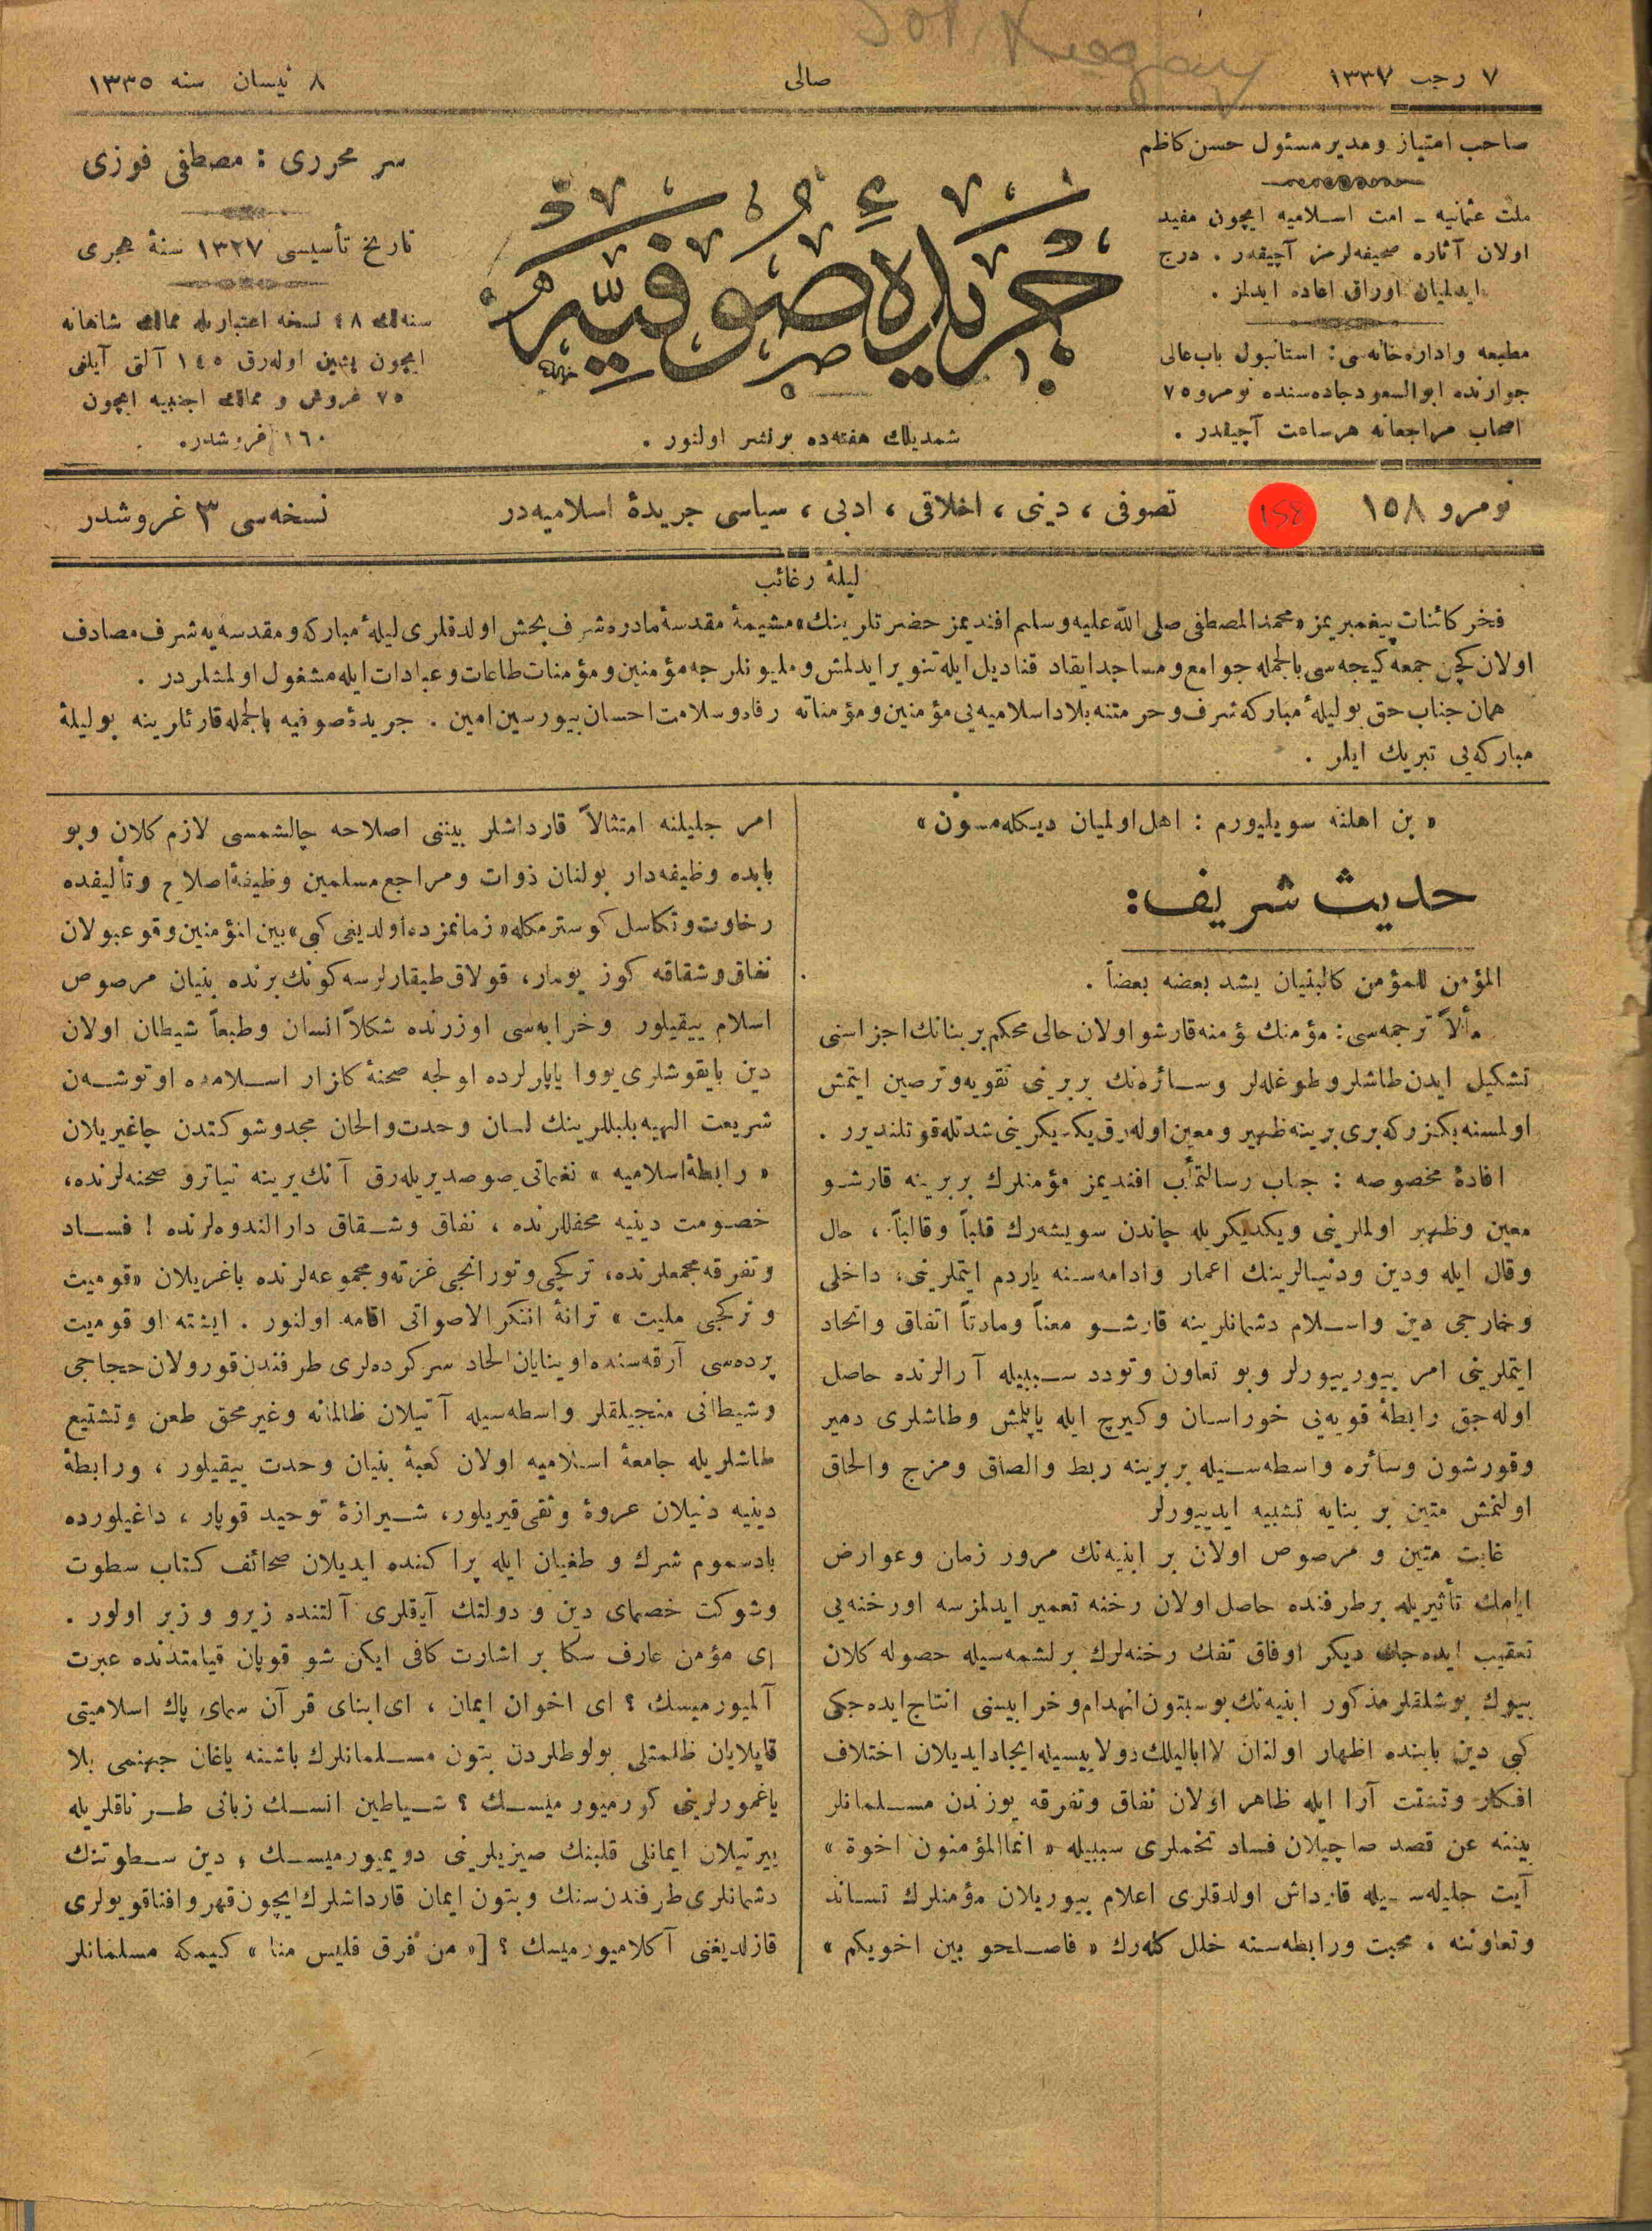 ٧ رجب ١٣٣٧
صالی
٨ نیسان سنه ١٣٣٥
صاحب امتیاز و مدیر مسئول حسن کاظم
ملت عثمانیه ـ امت اسلامیه ایچون مفید
اولان آثاره صحیفه‌لرمز آچیقدر . درج
ایدلمیان اوراق اعاده ایدلمز .
مطبعه واداره‌خانه‌سی : استانبول باب عالی
جوارنده ابوالسعود جاده‌سنده نومرو ٧٥
اصحاب مراجعاته هر ساعت آچیقدر .
جریدهٔ صوفیه
شمدیلك هفته‌ده بر نشر اولنور .
سر محرری : مصطفی فوزی
تاریخ تأسیسی ١٣٢٧ سنهٔ هجری
سنه‌لك ٤٨ نسخه اعتباریله ممالك شاهانه
ایچون پشین اوله‌رق ١٤٥ آلتی آیلغی
٧٥ غروش و ممالك اجنبیه ایچون
١٦٠ غروشدر
نومرو ١٥٨
تصوفی ، دینی ، اخلاقی ، ادبی ، سیاسی جریدهٔ اسلامیه‌در
نسخه‌سی ٣ غروشدر
لیلهٔ رغائب
فخر کائنات پیغمبریمز «محمد المصطفی صلی الله علیه وسلم افندیمز حضرتلرینك» مشیمهٔ مقدسهٔ مادره شرف بخش اولدقلری لیلهٔ مبارکه و مقدسه‌یه شرف مصادف
اولان کچن جمعه کیجه‌سی بالجمله جوامع و مساجد ایقاد قنادیل ایله تنویر ایدلمش و ملیونلرجه مؤمنین و مؤمنات طاعات و عبادات ایله مشغول اولمشلردر .
همان جناب حق بو لیلهٔ مبارکه شرف و حرمتنه بلاد اسلامیه‌یی مؤمنین و مؤمناته رفاه و سلامت احسان بیورسین امین . جریدهٔ صوفیه بالجمله قارئلرینه بو لیلهٔ
مبارکه‌یی تبریك ایلر .
« بن اهلنه سویلیورم : اهل اولمیان دیکله‌مسون »
حدیث شریف :
المؤمن للمؤمن کالبنیان یشد بعضه بعضاً .
مألاً ترجمه‌سی : مؤمنك مؤمنه قارشو اولان حالی محکم بر بنانك اجزاسنی
تشکیل ایدن طاشلر و طوغله‌لر وسائره‌نك بربرنی تقویه و ترصین ایتمش
اولمسنه بکزرکه بری برینه ظهیر و معین اوله‌رق یکدیکرینی شدتله قوتلندیرر .
افادهٔ مخصوصه : جناب رسالتمأب افندیمز مؤمنلرك بربرینه قارشو
معین وظهیر اولملرینی ویکدیکریله جاندن سویشه‌رك قلباً وقالباً ، حال
وقال ایله ودین ودنیالرینك اعمار وادامه‌سنه یاردم ایتملرینی ، داخلی
وخارجی دین واسلام دشمانلرینه قارشو معناً ومادتاً اتفاق واتحاد
ایتملرینی امر بیوریورلر وبو تعاون وتودد سببیله آرالرنده حاصل
اوله‌جق رابطهٔ قویه‌یی خوراسان وکیرچ ایله یاپلمش وطاشلری دمیر
وقورشون وسائره واسطه‌سیله بربرینه ربط والصاق ومزج والحاق
اولنمش متین بر بنایه تشبیه ایدییورلر
غایت متین و مرصوص اولان بر ابنیه‌نك مرور زمان وعوارض
ایامك تأثیریله بر طرفنده حاصل اولان رخنه تعمیر ایدلمزسه اورخنه‌یی
تعقیب ایده‌جك دیکر اوفاق تفك رخنه‌لرك برلشمه‌سیله حصوله کلان
بیوك بوشلقلر مذکور ابنیه‌نك بوسبتون انهدام و خرابیسنی انتاج ایده‌جکی
کبی دین بابنده اظهار اولنان لاابالیلك دولاییسیله ایجاد ایدیلان اختلاف
افکار وتشتت آرا ایله ظاهر اولان نفاق وتفرقه یوزندن مسلمانلر
بیننه عن قصد صاچیلان فساد تخملری سببیله « انما المؤمنون اخوة »
آیت جلیله‌سیله قارداش اولدقلری اعلام بیوریلان مؤمنلرك تساند
وتعاوننه ، محبت ورابطه‌سنه خلل کله‌رك « فاصلحو بین اخویکم »
امر جلیلنه امتثالاً قارداشلر بیننی اصلاحه چالشمسی لازم کلان وبو
بابده وظیفه‌دار بولنان ذوات ومراجع مسلمین وظیفهٔ اصلاح وتألیفده
رخاوت وتکاسل کوسترمکله « زمانمزده اولدیغی کبی » بین المؤمنین وقوعبولان
نفاق وشقاقه کوز یومار ، قولاق طیقارلرسه کونك برنده بنیان مرصوص
اسلام ییقیلور وخرابه‌سی اوزرنده شکلاً انسان وطبعاً شیطان اولان
دین بایقوشلری یووا یاپارلرده اولجه صحنهٔ کلزار اسلامده اوتوشن
شریعت الهیه بلبللرینك لسان وحدت والحان مجد وشوکتدن چاغیریلان
« رابطهٔ اسلامیه » نغماتی صوصدیریله‌رق آنك یرینه تیاترو صحنه‌لرنده ،
خصومت دینیه محفللرنده ، نفاق وشقاق دارالندوه‌لرنده ! فساد
وتفرقه مجمعلرنده ، ترکچی وتورانجی غزته ومجموعه‌لرنده باغریلان « قومیت
و ترکجی ملیت » ترانهٔ انکر الاصواتی اقامه اولنور . ایشته او قومیت
پرده‌سی آرقه‌سنده اوینایان الحاد سرکرده‌لری طرفندن قورولان حجاجی
وشیطانی منجنیقلر واسطه‌سیله آتیلان ظالمانه وغیر محق طعن وتشنیع
طاشلریله جامعهٔ اسلامیه اولان کعبهٔ بنیان وحدت ییقیلور ، ورابطهٔ
دینیه دنیلان عروهٔ وثقی قیریلور ، شیرازهٔ توحید قوپار ، داغیلورده
بادسموم شرك و طغیان ایله پراکنده ایدیلان صحائف کتاب سطوت
وشوکت خصمای دین و دولتك آیاقلری آلتنده زیرو وزبر اولور .
ای مؤمن عارف سکا بر اشارت کافی ایکن شو قوپان قیامتدنده عبرت
آلمیورمیسك ؟ ای اخوان ایمان ، ای ابنای قرآن سمای پاك اسلامیتی
قاپلایان ظلمتلی بولوطلردن بتون مسلمانلرك باشنه یاغان جهنمی بلا
یاغمورلرینی کورمیورمیسك ؟ شیاطین انسك زبانی طرناقلریله
ییرتیلان ایمانلی قلبنك صیزیلرینی دویمیورمیسك ، دین سطوتنك
دشمانلری طرفندن سنك وبتون ایمان قارداشلرك ایچون قهر وافنا قویولری
قازلدیغنی آکلامیورمیسك ؟ [« من فرق فلیس منا » کیمکه مسلمانلر